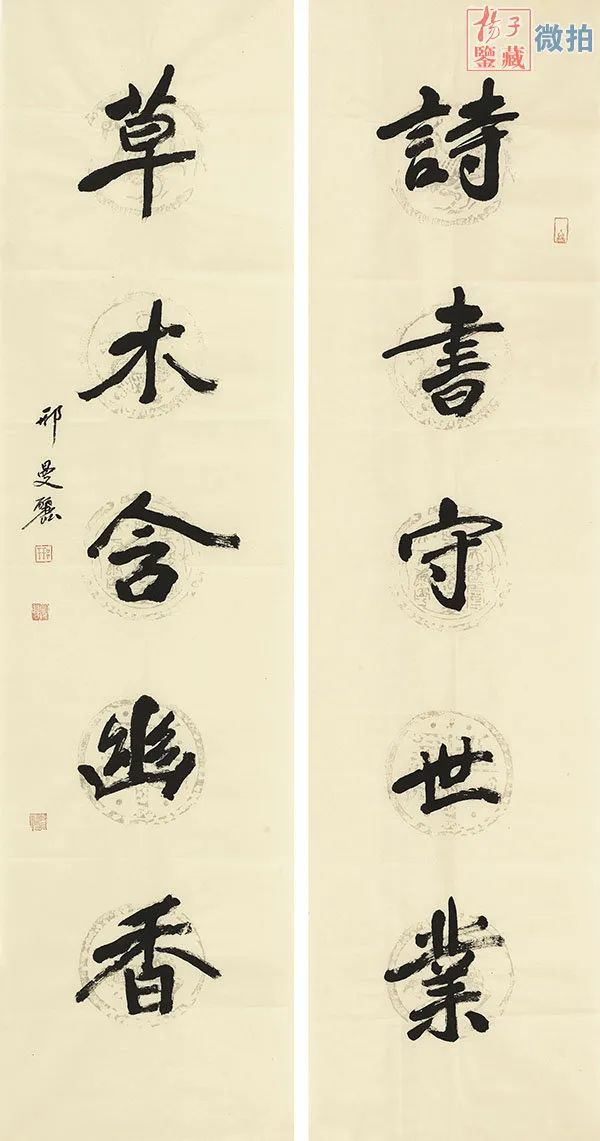 詩書守世業
草木含幽香
邢曼麗
楊子鑒藏
微拍